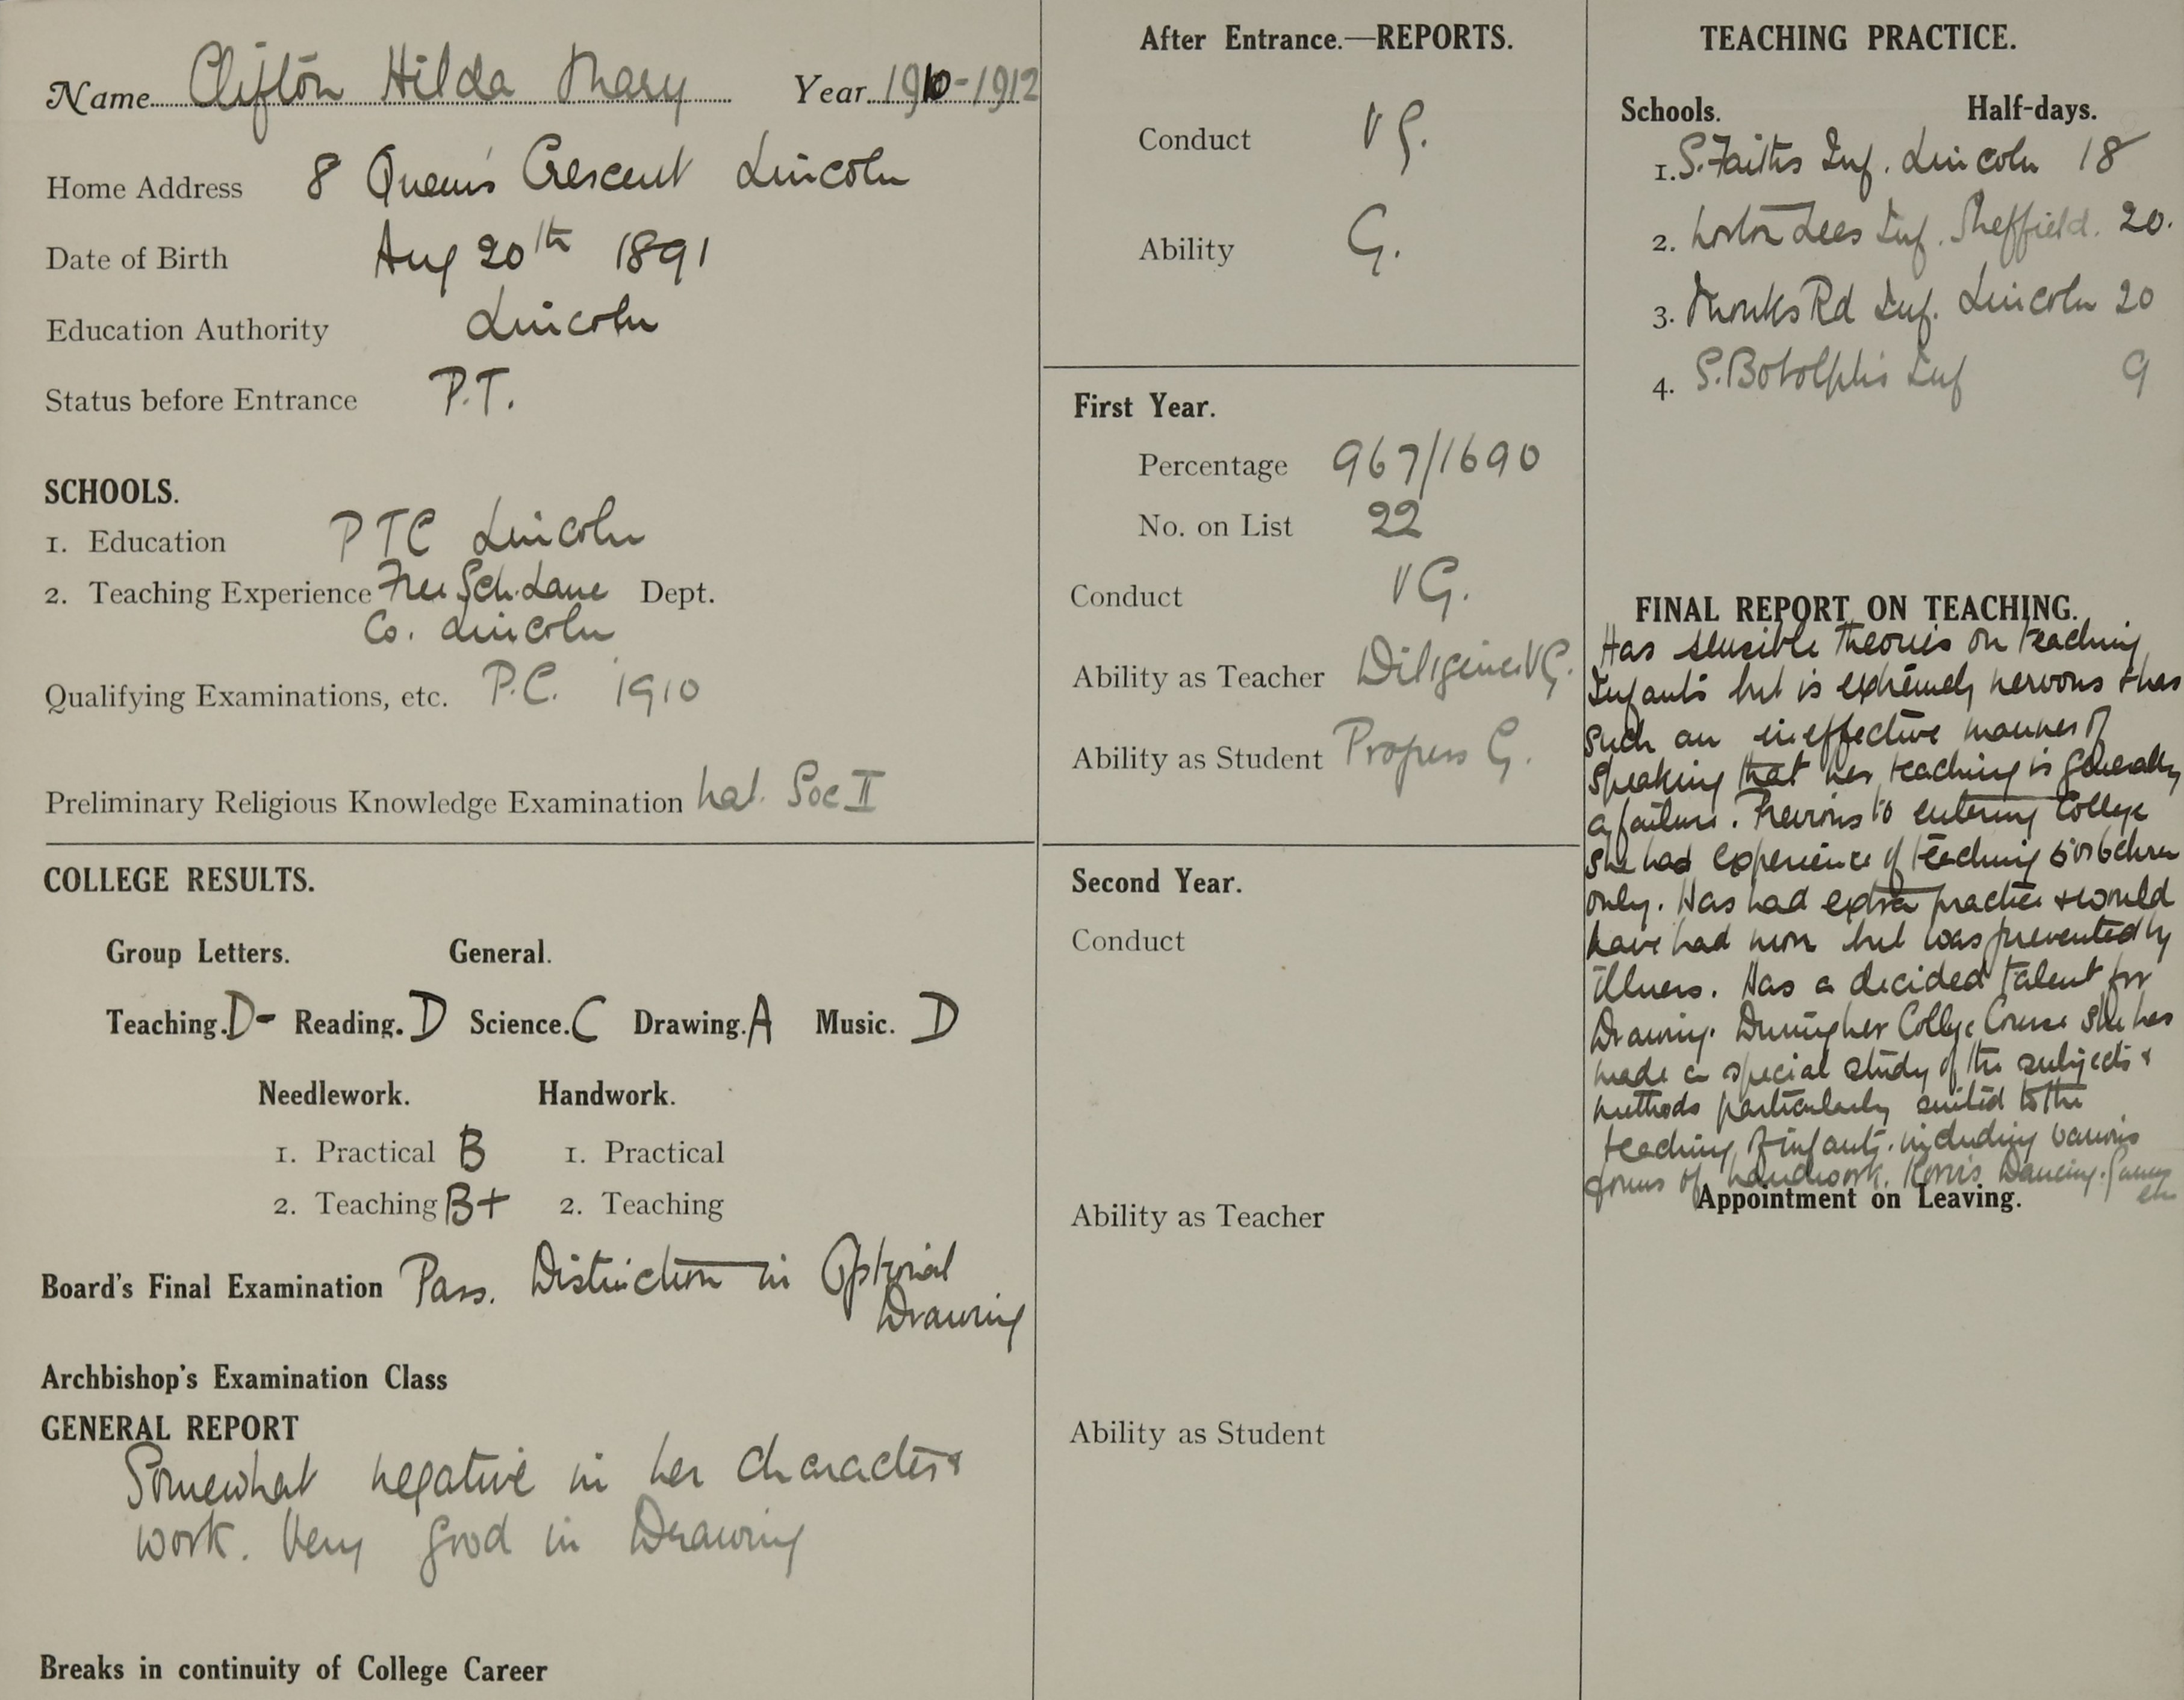 Name Clifton Hilda Mary Year 1910-1912
Home Address 8 Queen's Crescent Lincoln
Date of Birth Aug 20th 1891
Education Authority Lincoln
Status before Entrance P.T.
SCHOOLS.
1. Education PTC Lincoln
2. Teaching Experience Free Sch. Lane Dept.
Co. Lincoln
Qualifying Examinations, etc. P.C. 1910
Preliminary Religious Knowledge Examination Nat. Soc II
COLLEGE RESULTS.
Group Letters. General.
Teaching. D- Reading. D Science. C Drawing. A Music. D
Needlework. Handwork.
1. Practical B 1. Practical
2. Teaching B+ 2. Teaching
Board's Final Examination Pass. Distinction in Optional
Drawing
Archbishop's Examination Class
GENERAL REPORT
Somewhat negative in her character &
work. Very good in Drawing
Breaks in continuity of College Career
After Entrance.—REPORTS.
Conduct VG.
Ability G.
First Year.
Percentage 967/1690
No. on List 22
Conduct VG.
Ability as Teacher Diligence VG.
Ability as Student Progress G.
Second Year.
Conduct
Ability as Teacher
Ability as Student
TEACHING PRACTICE.
Schools. Half-days.
1. S. Faiths Inf. Lincoln 18
2. Lees Inf. Sheffield. 20.
3. Monks Rd Inf. Lincoln 20
4. S. Botolph's Inf 9
FINAL REPORT ON TEACHING.
Has sensible theories on teaching
Infants but is extremely nervous & has
such an ineffective manner of
speaking that her teaching is generally
a failure. Previous to entering College
she had experience of teaching 5 or 6 chrn
only. Has had extra practice & would
have had more but was prevented by
illness. Has a decided talent for
Drawing. During her College Course she has
made a special study of the subjects &
methods particularly suited to the
teaching of infants. including various
forms of handwork. Dancing. Games
etc
Appointment on Leaving.